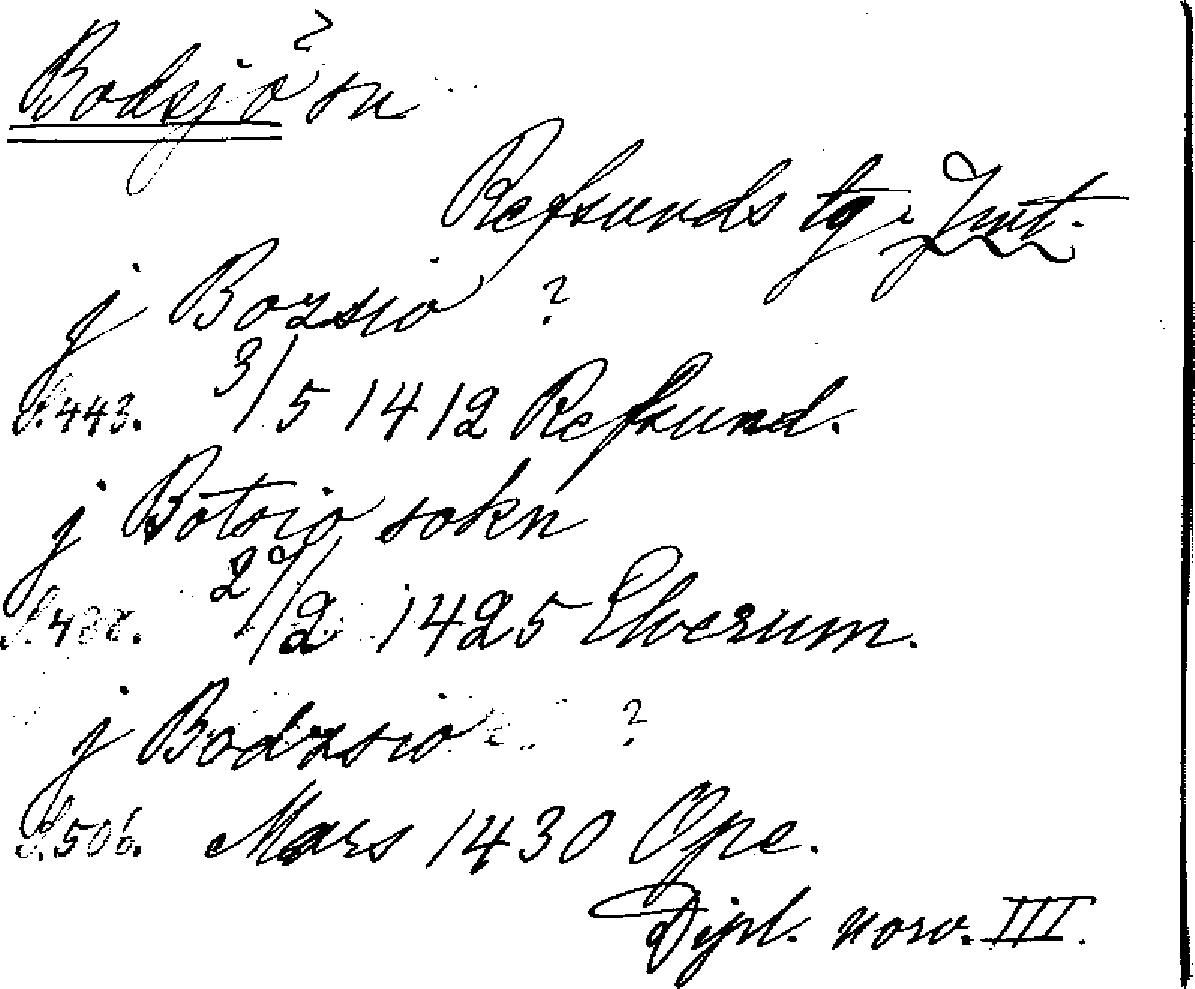 Bodsjö ? sn
Refsunds tg. Jmt.
j Bozsio ?
S. 443. 3/5 1412 Refsund.
j Botsio sokn
S. 488. 20/2 1425 Elverum.
j Bodzsio ?
S. 506. Mars 1430 Ope.
Dipl. norv. III.